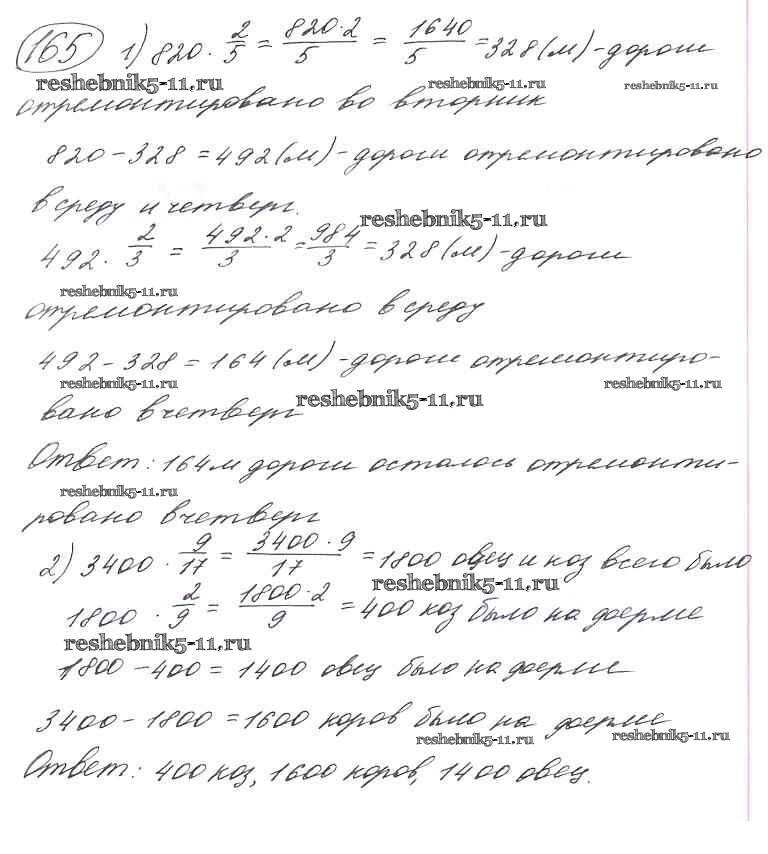 165 1) 820 · 2/5 = 820·2/5 = 1640/5 = 328 (м) - дороги
reshebnik5-11.ru reshebnik5-11.ru reshebnik5-11.ru
отремонтировано во вторник
820 - 328 = 492 (м) - дороги отремонтировано
в среду и четверг.
reshebnik5-11.ru
492 · 2/3 = 492·2/3 = 984/3 = 328 (м) - дороги
reshebnik5-11.ru
отремонтировано в среду
492 - 328 = 164 (м) - дороги отремонтиро-
reshebnik5-11.ru reshebnik5-11.ru
reshebnik5-11.ru
вано в четверг
Ответ: 164 м дороги осталось отремонти-
reshebnik5-11.ru
ровано в четверг
2) 3400 · 9/17 = 3400·9/17 = 1800 овец и коз всего было
reshebnik5-11.ru
1800 · 2/9 = 1800·2/9 = 400 коз было на ферме
reshebnik5-11.ru
1800 - 400 = 1400 овец было на ферме
3400 - 1800 = 1600 коров было на ферме
reshebnik5-11.ru reshebnik5-11.ru
Ответ: 400 коз, 1600 коров, 1400 овец.